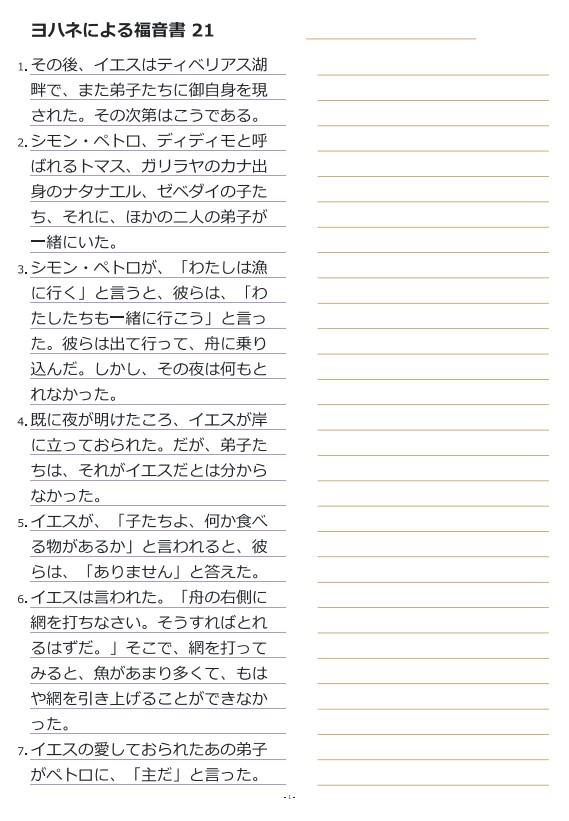 ヨハネによる福音書 21
1. その後、イエスはティベリアス湖
畔で、また弟子たちに御自身を現
された。その次第はこうである。
2. シモン・ペトロ、ディディモと呼
ばれるトマス、ガリラヤのカナ出
身のナタナエル、ゼベダイの子た
ち、それに、ほかの二人の弟子が
一緒にいた。
3. シモン・ペトロが、「わたしは漁
に行く」と言うと、彼らは、「わ
たしたちも一緒に行こう」と言っ
た。彼らは出て行って、舟に乗り
込んだ。しかし、その夜は何もと
れなかった。
4. 既に夜が明けたころ、イエスが岸
に立っておられた。だが、弟子た
ちは、それがイエスだとは分から
なかった。
5. イエスが、「子たちよ、何か食べ
る物があるか」と言われると、彼
らは、「ありません」と答えた。
6. イエスは言われた。「舟の右側に
網を打ちなさい。そうすればとれ
るはずだ。」そこで、網を打って
みると、魚があまり多くて、もは
や網を引き上げることができなか
った。
7. イエスの愛しておられたあの弟子
がペトロに、「主だ」と言った。
- 1 -